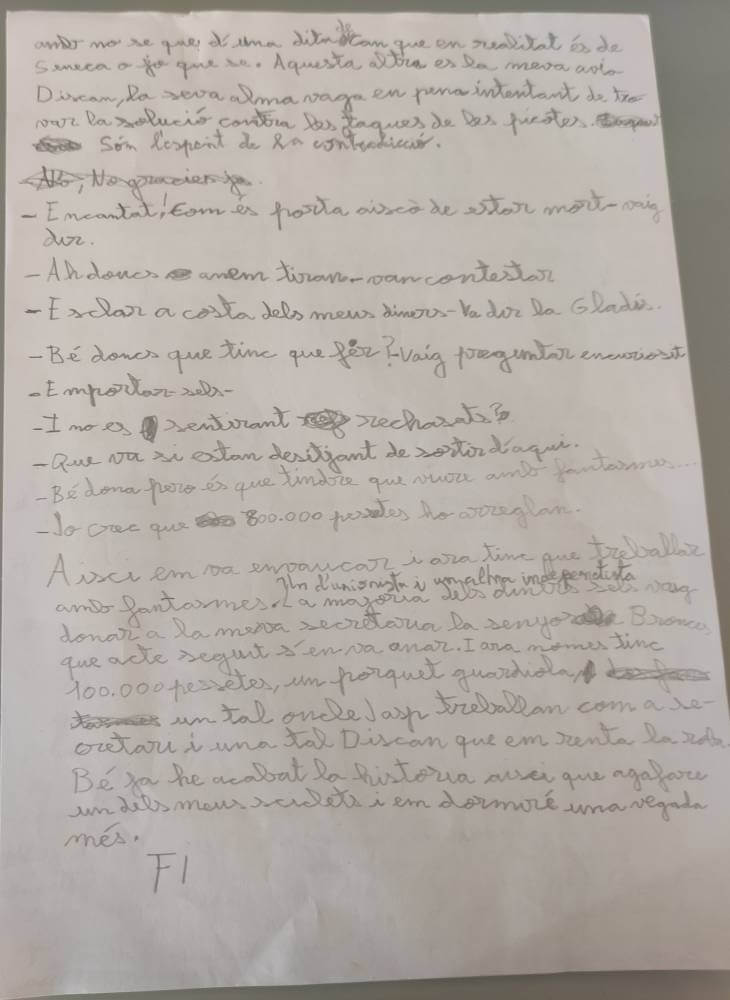 amb no se que d'una dita de can que en realitat és de
Seneca o jo que se. Aquesta altra es la meva avia
Discan, la seva alma vaga en pena intentant de tro
var la solució contra les taques de les picotes.
Són l'esperit de la contradicció.
No, No gracies ja.
- Encantat! Com és porta aiscò de estar mort - vaig
dir.
- Ah doncs anem tiran - van contestar
- Esclar a costa dels meus diners - Va dir la Gladis.
- Bé doncs que tinc que fer? - Vaig preguntar encuriosit
- Emportar-sels -
- I no es sentirant rechasats?
- Que va si estan desitjant de sortir d'aqui.
- Bé dona pero és que tindre que viure amb fantasmes...
- Jo crec que 800.000 pessetes ho arreglan.
Aisci em va enraucar i ara tinc que treballar
amb fantasmes. Un d'unionista i un alma independista
La majoria dels diners sels vaig
donar a la meva secretaria la senyora Bronca
que acte seguit s'en va anar. I ara nomes tinc
100.000 pessetes, un porquet guardiola,
un tal oncle Jasp treballan com a se-
cretari i una tal Discan que em renta la roba.
Bé ja he acabat la història aisci que agafare
un dels meus sciclets i em dormiré una vegada
més.
FI